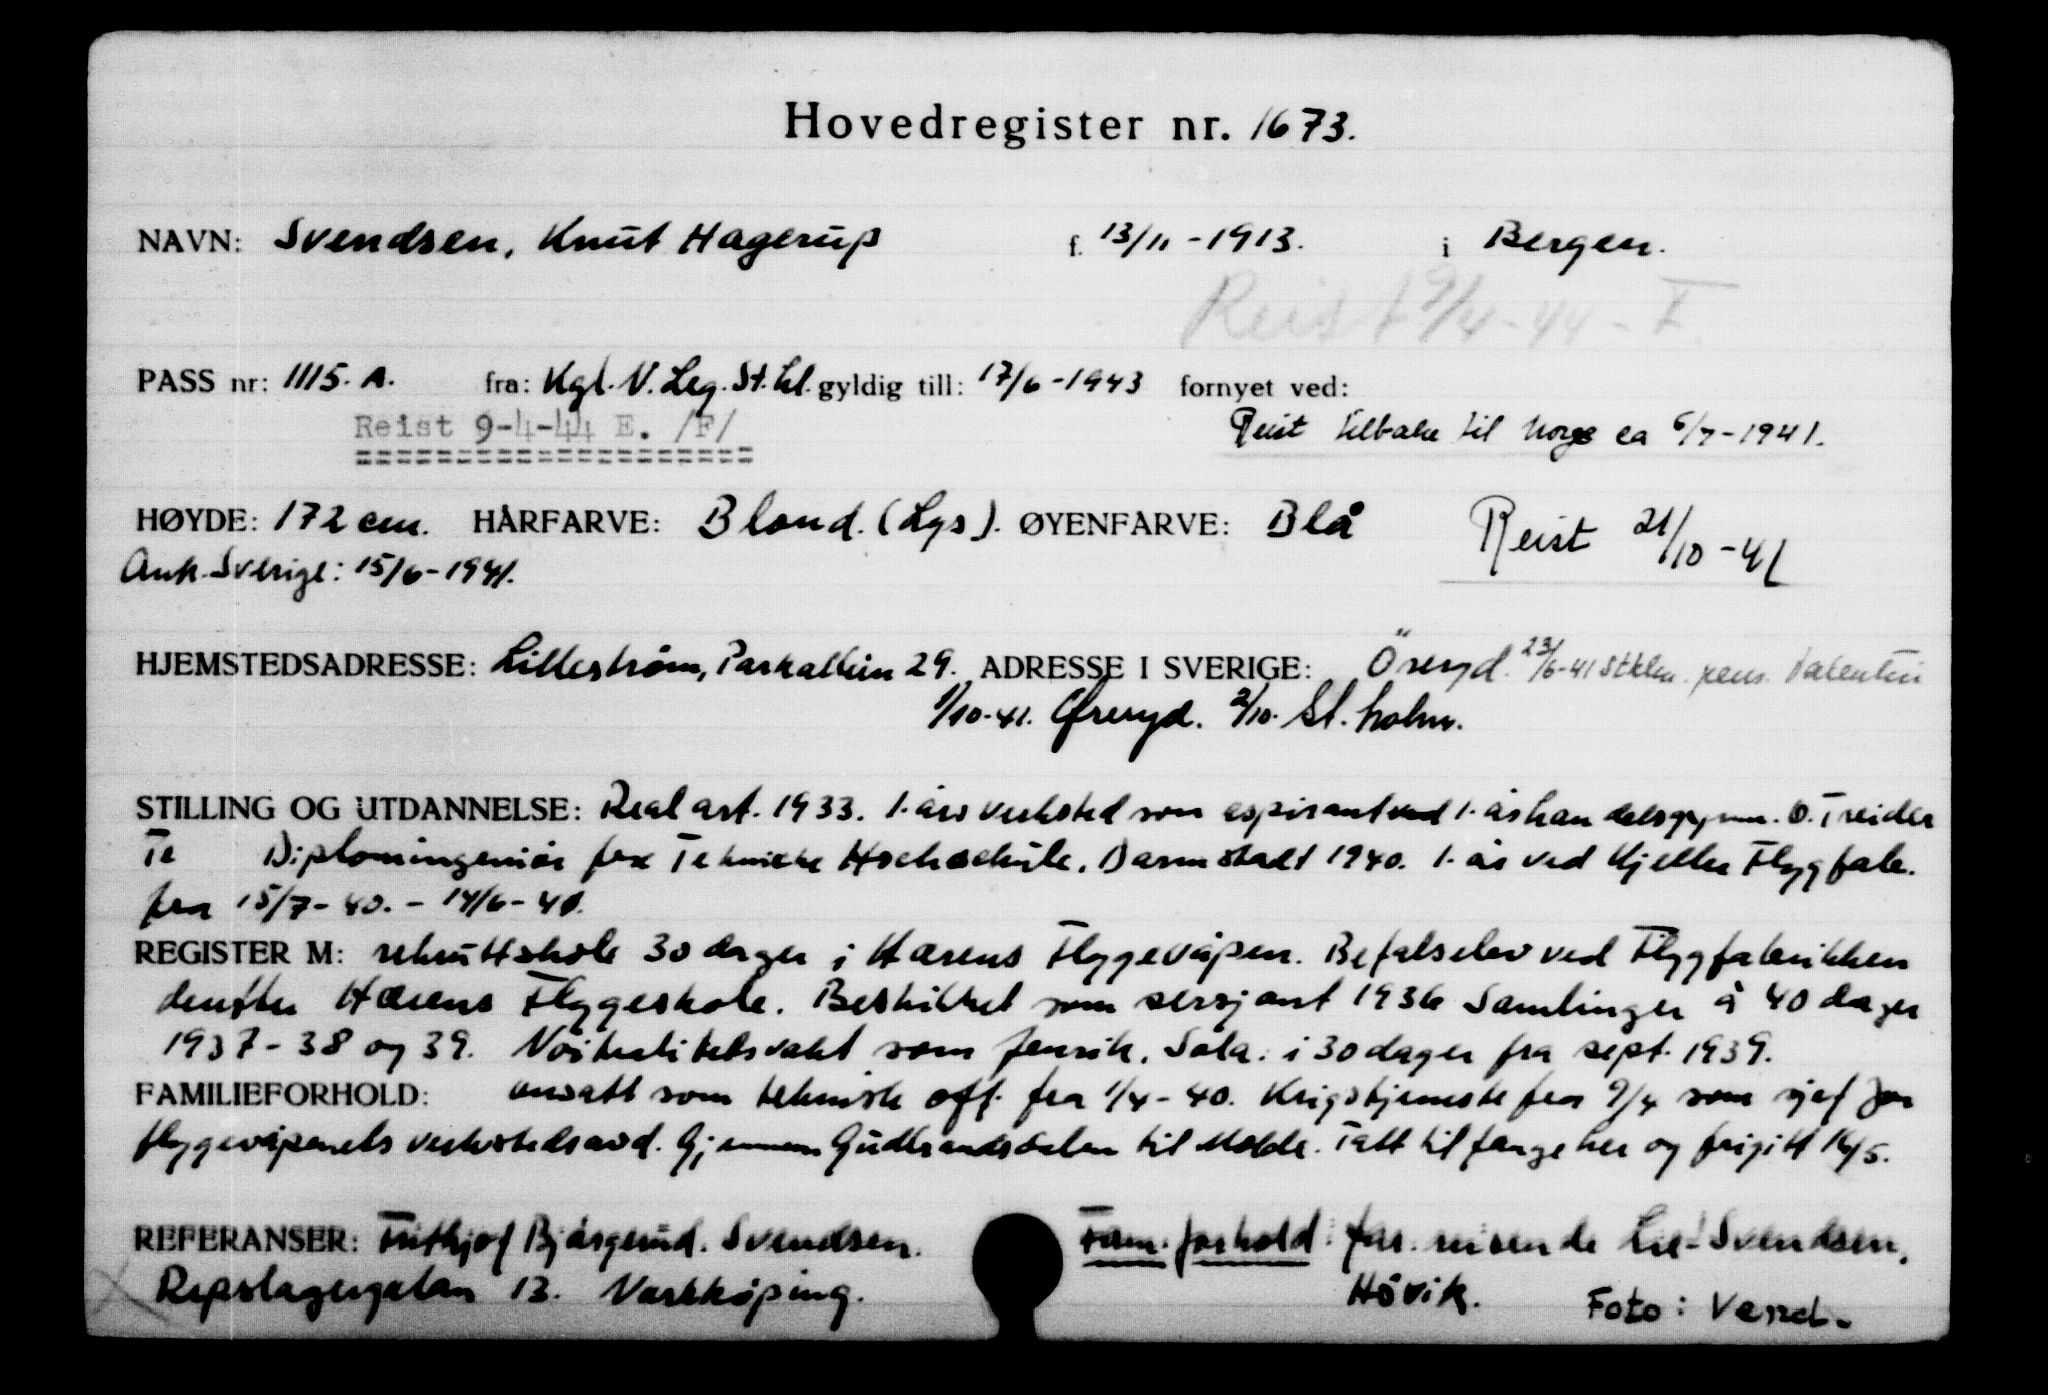 Hovedregister nr. 1673.
NAVN: Svendsen, Knut Hagerup f. 13/11-1913. i Bergen.
Reist 9/4-44-F.
PASS nr: 1115. A. fra: Kgl. N. Leg. St.hl. gyldig till: 17/6-1943 fornyet ved:
Reist 9-4-44 E. /F/
Reist tilbake til Norge ca 6/7-1941.
HØYDE: 172 cm. HÅRFARVE: Blond. (Lys). ØYENFARVE: Blå
Reist 21/10-41
Ank. Sverige: 15/6-1941.
HJEMSTEDSADRESSE: Lillestrøm, Parkalleèn 29. ADRESSE I SVERIGE: Öreryd. 23/6-41 Sthlm. pens. Valentin
1/10-41. Øreryd. 2/10. St.holm.
STILLING OG UTDANNELSE: Real art. 1933. 1. års verksted som aspirant ved 1. års handelsgymn. O. Treider
Te Diplomingeniør fra Tekniske Hochschule, Darmstadt 1940. 1. år ved Kjeller Flygfabr.
fra 15/7-40. - 14/6-41.
REGISTER M: rekruttskole 30 dager i Hærens Flyggevåpen. Befalselev ved Flygfabrikken
derefter Hærens Flyggeskole. Beskikket som sersjant 1936 Samlinger à 40 dager
1937-38 og 39. Nøitralitetsvakt som fenrik, Sola. i 30 dager fra sept. 1939.
FAMILIEFORHOLD: ansatt som teknisk off. fra 1/4-40. Krigstjeneste fra 9/4 som sjef for
flyggevåpenets verkstedsavd. Gjennem Gudbrandsdalen til Molde. Tatt til fange her og frigitt 16/5.
REFERANSER: Frithjof Bjårgerud. Svendsen.
Repslageregatan 13. Norrkøping.
Fam. forhold: far. reisende Lie-Svendsen,
Høvik.
Foto: Vernet.